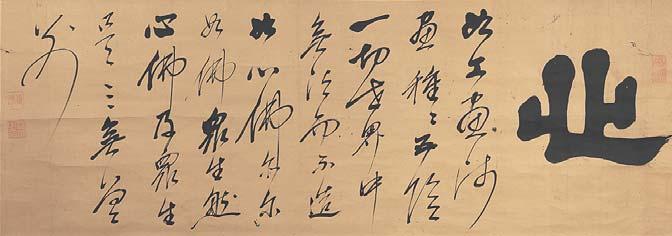 心
如工畫師
畫種々五陰
一切世界中
無法而不造
如心佛亦尓
如佛眾生然
心佛及眾生
是三無差
別